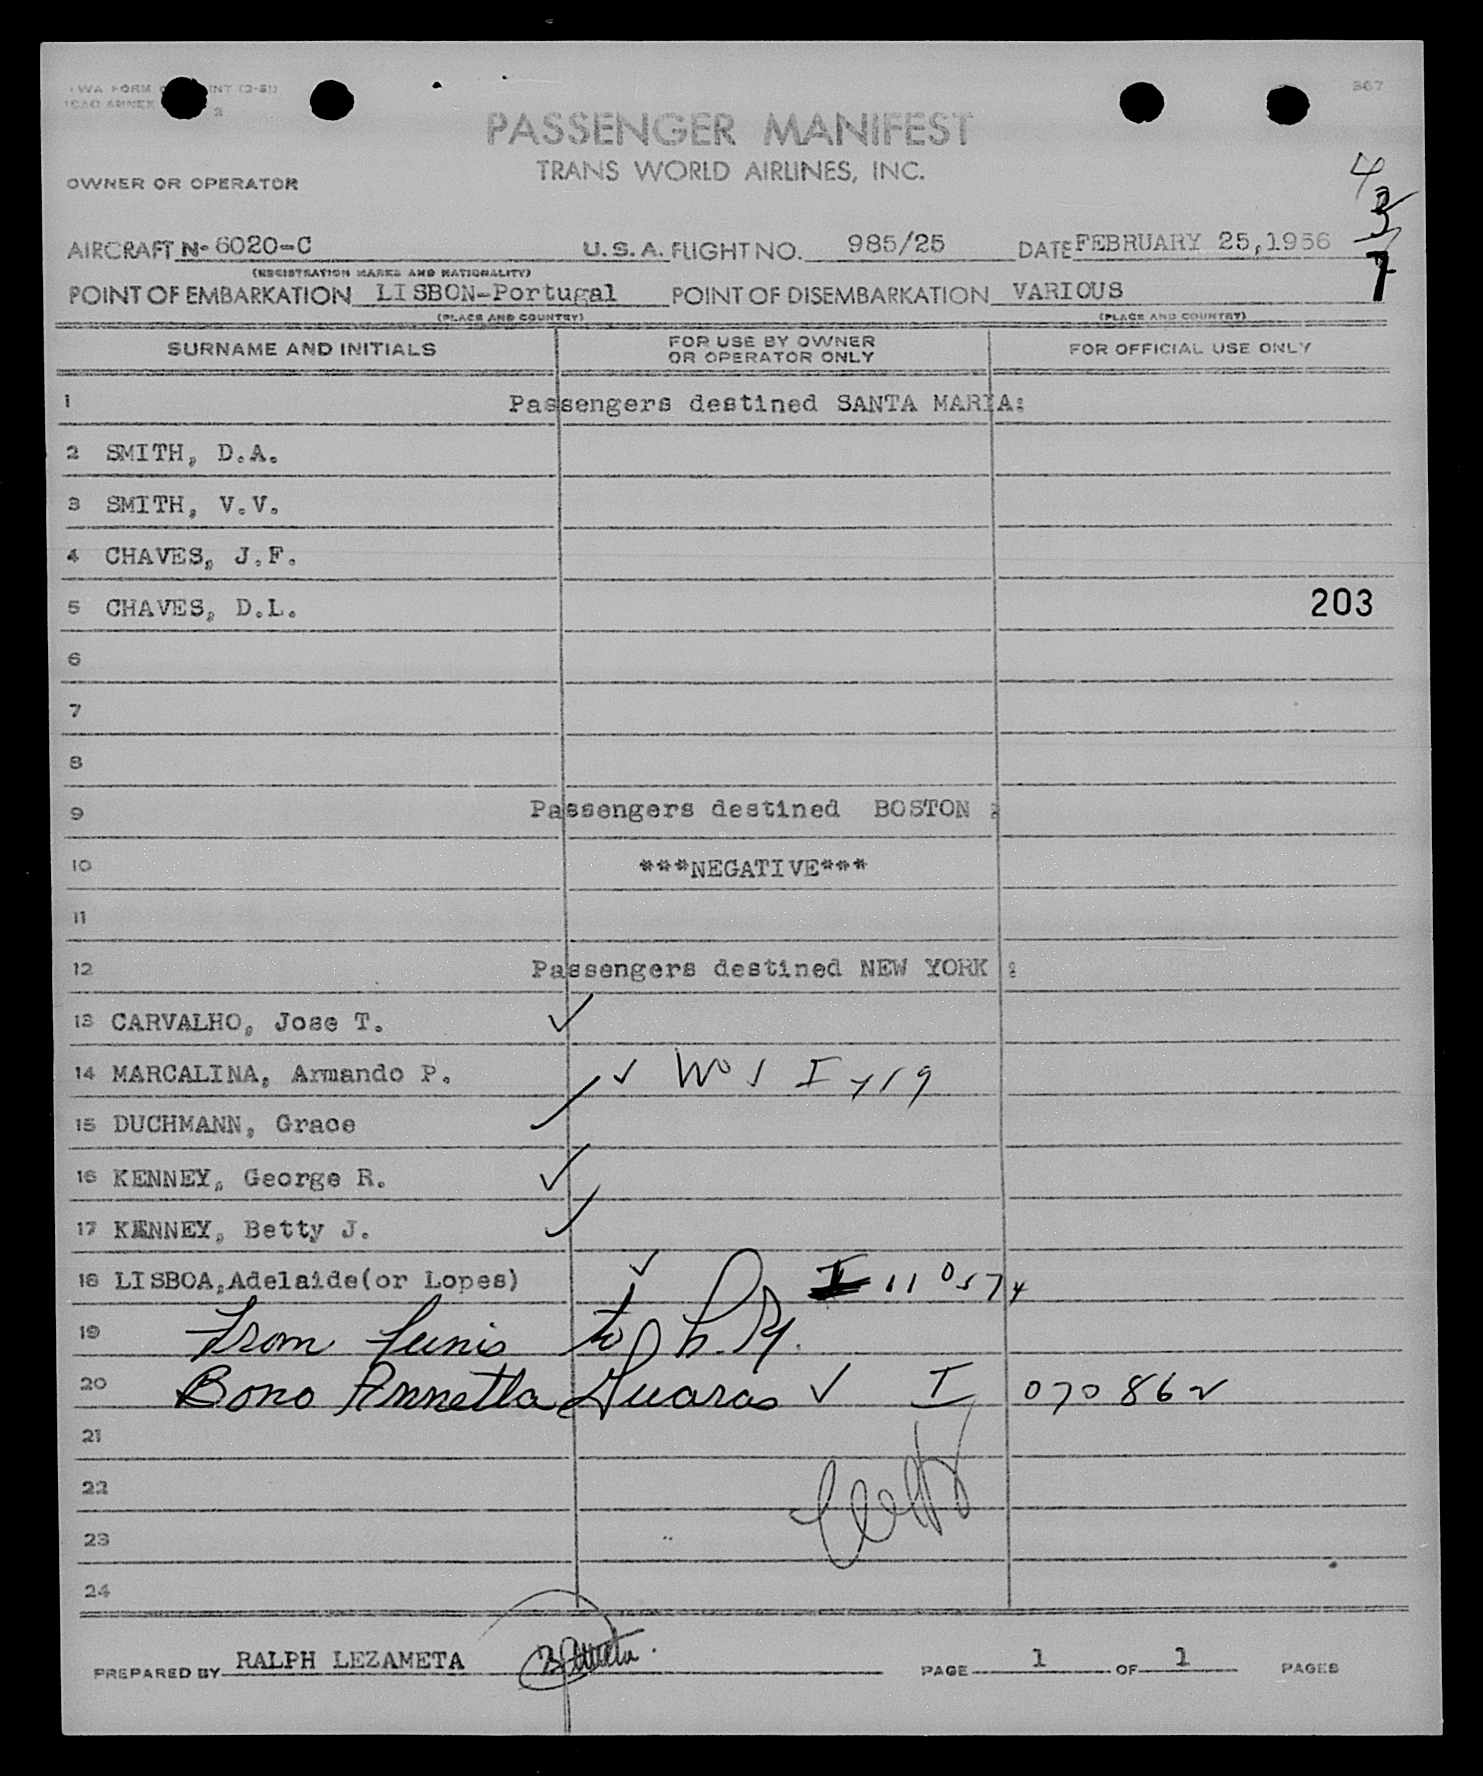 367
PASSENGER MANIFEST
TRANS WORLD AIRLINES, INC.
OWNER OR OPERATOR
4
3
7
AIRCRAFT N- 6020-C U.S.A. FLIGHT NO. 985/25 DATE FEBRUARY 25,1956
(REGISTRATION MARKS AND NATIONALITY)
POINT OF EMBARKATION LISBON-Portugal POINT OF DISEMBARKATION VARIOUS
(PLACE AND COUNTRY) (PLACE AND COUNTRY)
SURNAME AND INITIALS FOR USE BY OWNER OR OPERATOR ONLY FOR OFFICIAL USE ONLY
1 Passengers destined SANTA MARIA:
2 SMITH, D.A.
3 SMITH, V.V.
4 CHAVES, J.F.
5 CHAVES, D.L. 203
6
7
8
9 Passengers destined BOSTON :
10 ***NEGATIVE***
11
12 Passengers destined NEW YORK :
13 CARVALHO, Jose T. ✓
14 MARCALINA, Armando P. ✓
15 DUCHMANN, Grace ✓
16 KENNEY, George R. ✓
17 KENNEY, Betty J. ✓
18 LISBOA,Adelaide(or Lopes) ✓ I 110574
19 From Tunis to
20 Bono Annetta Guaras ✓ I 070862
21
22
23
24
PREPARED BY RALPH LEZAMETA PAGE 1 OF 1 PAGES